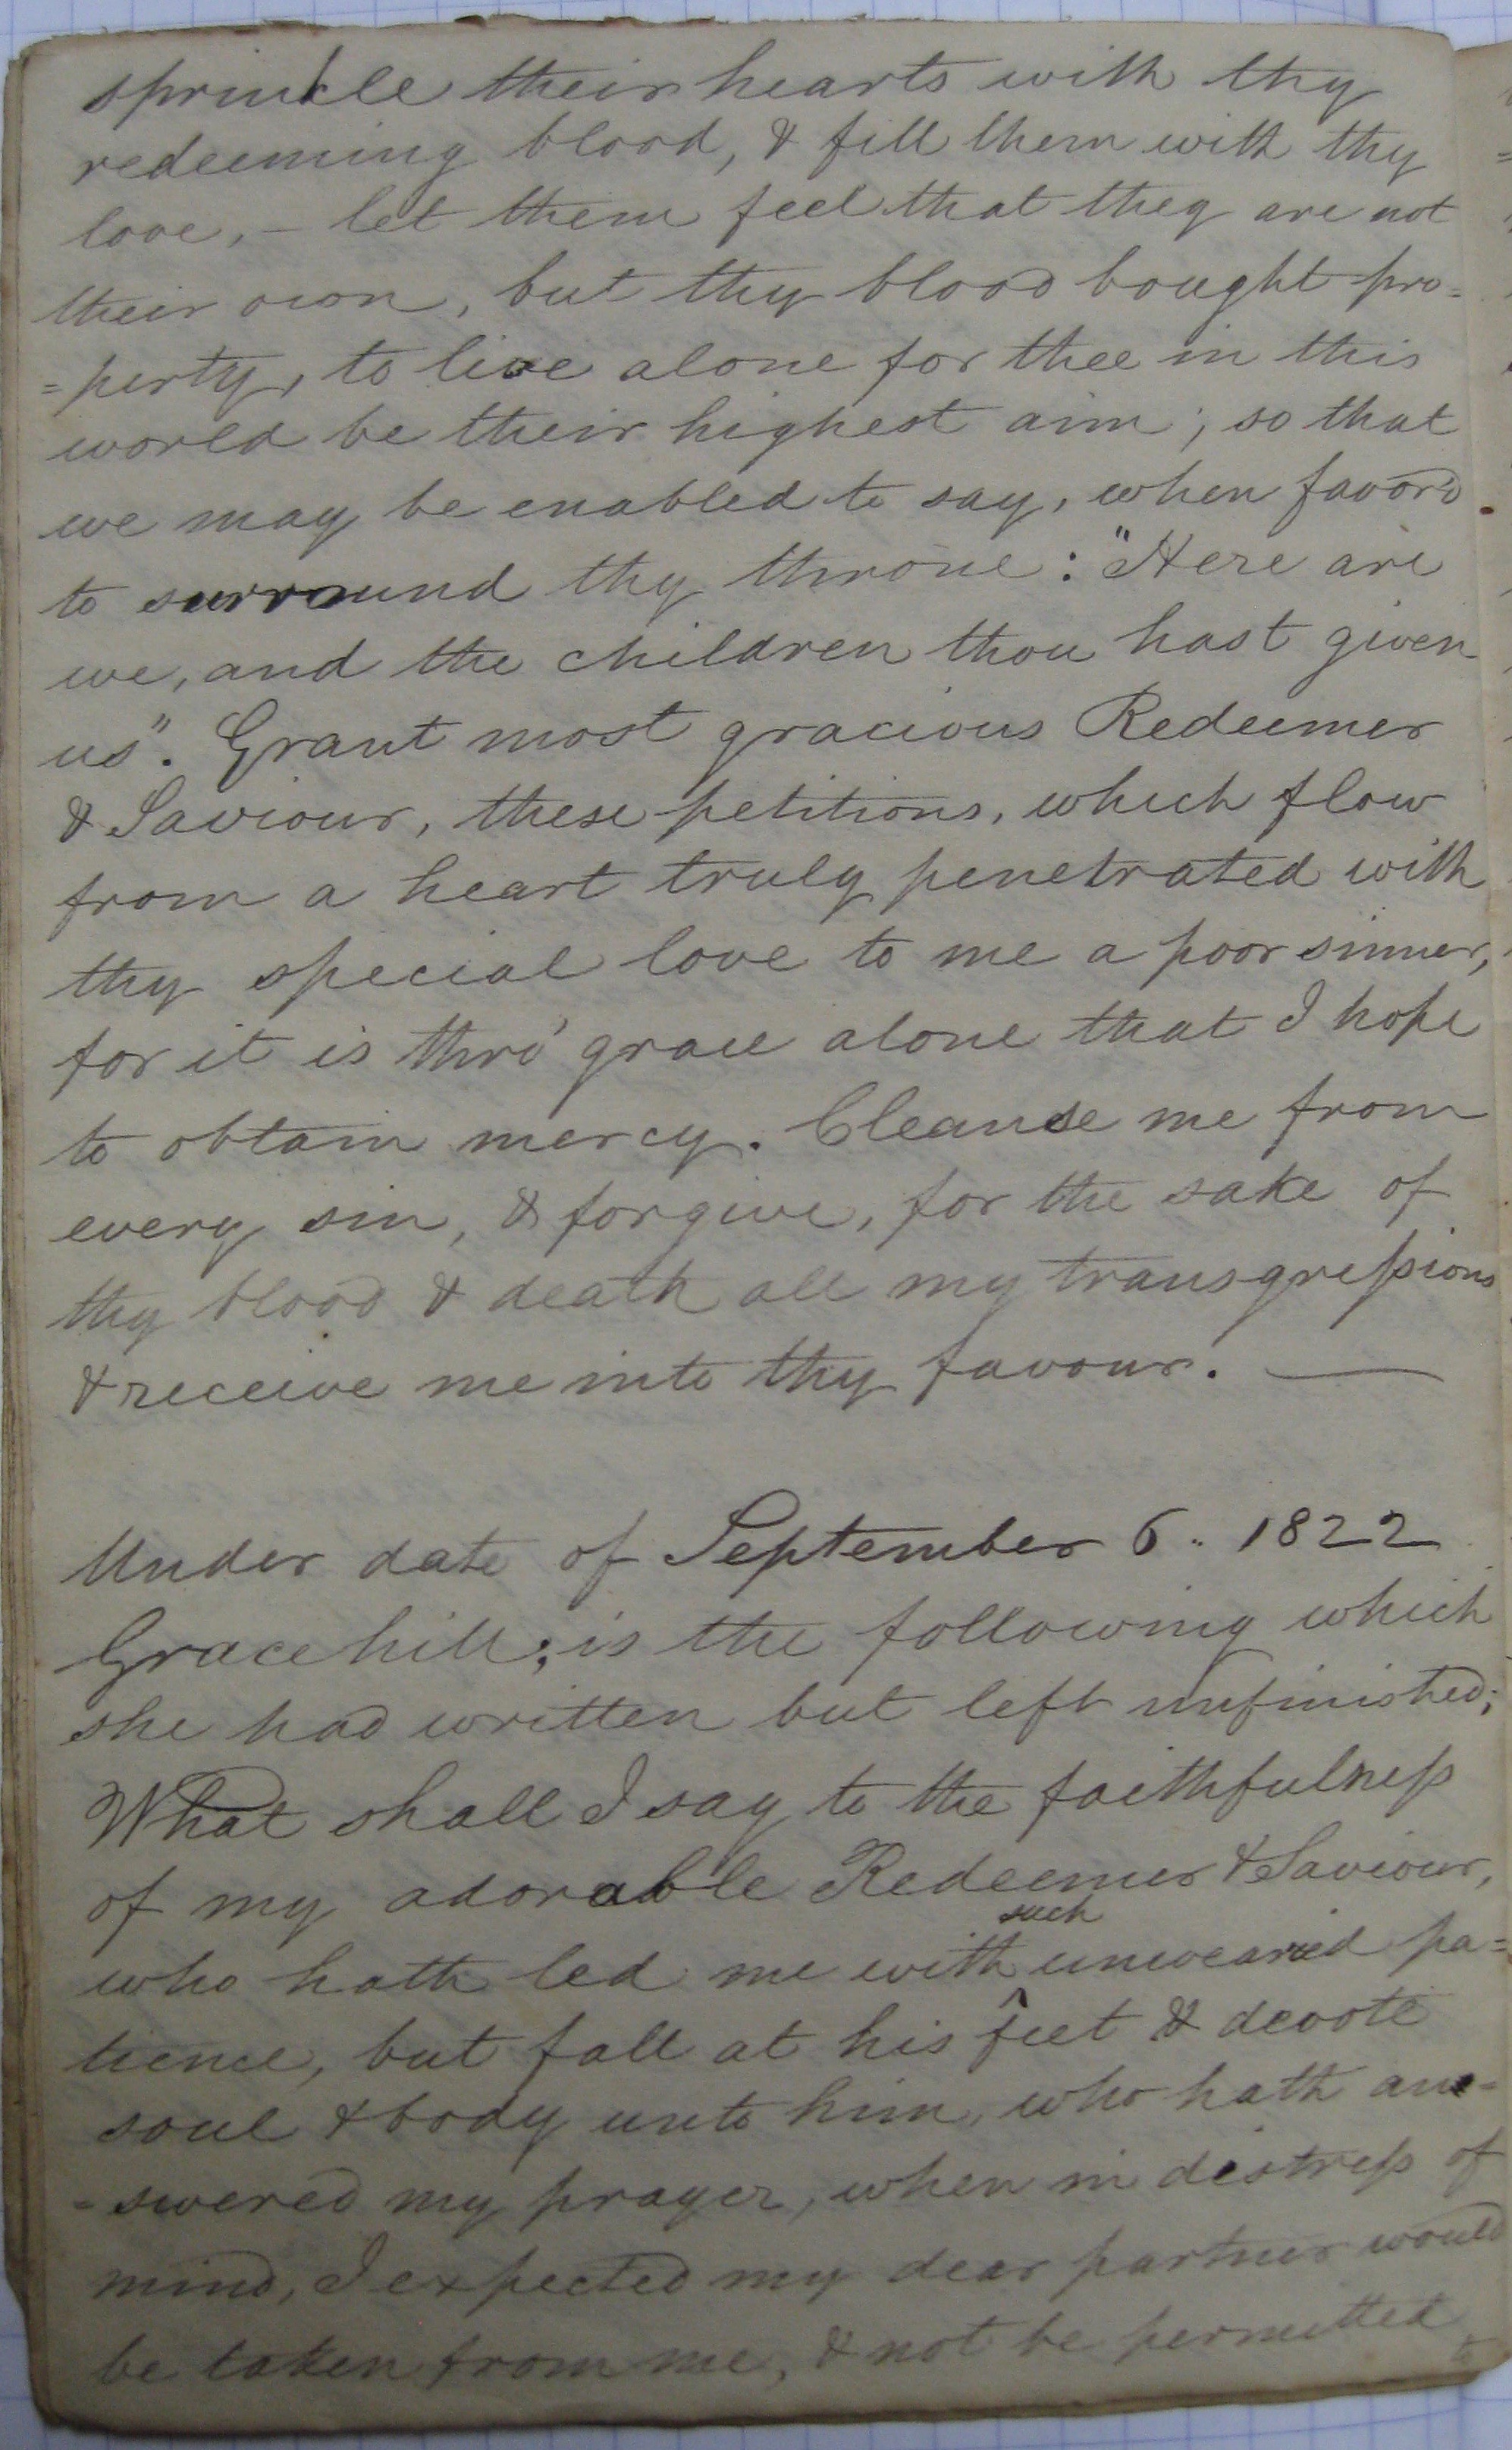 sprinkle their hearts with thy
redeeming blood, & fill them with thy
love, – let them feel that they are not
their own, but thy blood bought pro=
=perty, to live alone for thee in this
world be their highest aim; so that
we may be enabled to say, when favor'd
to surround thy throne: "Here are
we, and the children thou hast given
us". Grant most gracious Redeemer
& Saviour, these petitions, which flow
from a heart truly penetrated with
thy special love to me a poor sinner,
for it is thro' grace alone that I hope
to obtain mercy. Cleanse me from
every sin, & forgive, for the sake of
thy blood & death all my transgreſsions
& receive me into thy favour. —
Under date of September 6.. 1822
Gracehill; is the following which
she had written but left unfinished;
What shall I say to the faithfulneſs
of my adorable Redeemer & Saviour,
who hath led me with such unwearied pa=
tience, but fall at his feet & devote
soul & body unto him, who hath an=
=swered my prayer, when in distreſs of
mind, I expected my dear partner would
be taken from me, & not be permitted
to